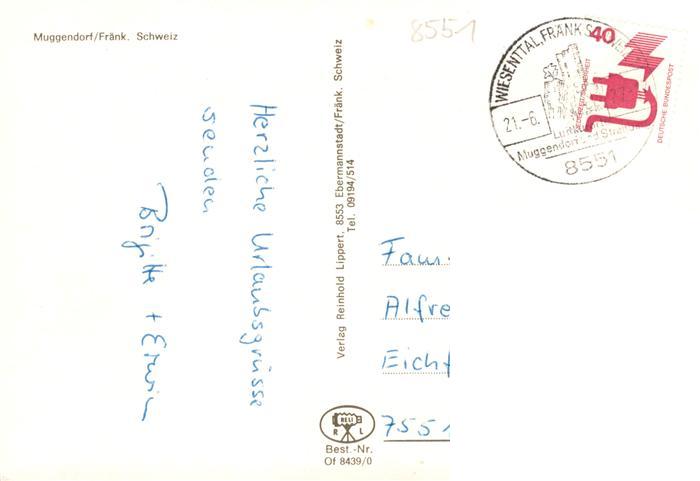 Muggendorf/Fränk. Schweiz
8551
Herzliche Urlaubsgrüsse
senden
Brigitte + Erwin
Verlag Reinhold Lippert, 8553 Ebermannstadt/Fränk. Schweiz
Tel. 09194/514
RELI
R L
Best.-Nr.
Of 8439/0
WIESENTTAL, FRÄNK.SCHWEIZ
21.-6.
Muggendorf und Streitberg
8551
40
JEDERZEIT SICHERHEIT
DEUTSCHE BUNDESPOST
Fam.
Alfre
Eich
755